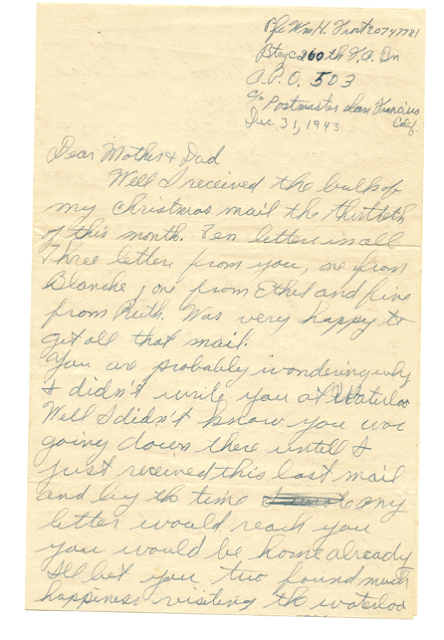 Pfc Wm H. Frost 20747781
Btry C 260 th F.A. Bn
A.P.O. 503
c/o Postmaster San Francisco
Calif.
Dec 31, 1943
Dear Mother & Dad
Well I received the bulk of
my Christmas mail the thirtieth
of this month. Ten letters in all
Three letters from you, one from
Blanche, one from Ethel and five
from Ruth. Was very happy to
get all that mail.
You are probably wondering why
I didn't write you at Waterloo
Well I didn't know you was
going down there until I
just received this last mail
and by the time my
letter would reach you
you would be home already
I'll bet you two found much
happiness visiting the waterloo